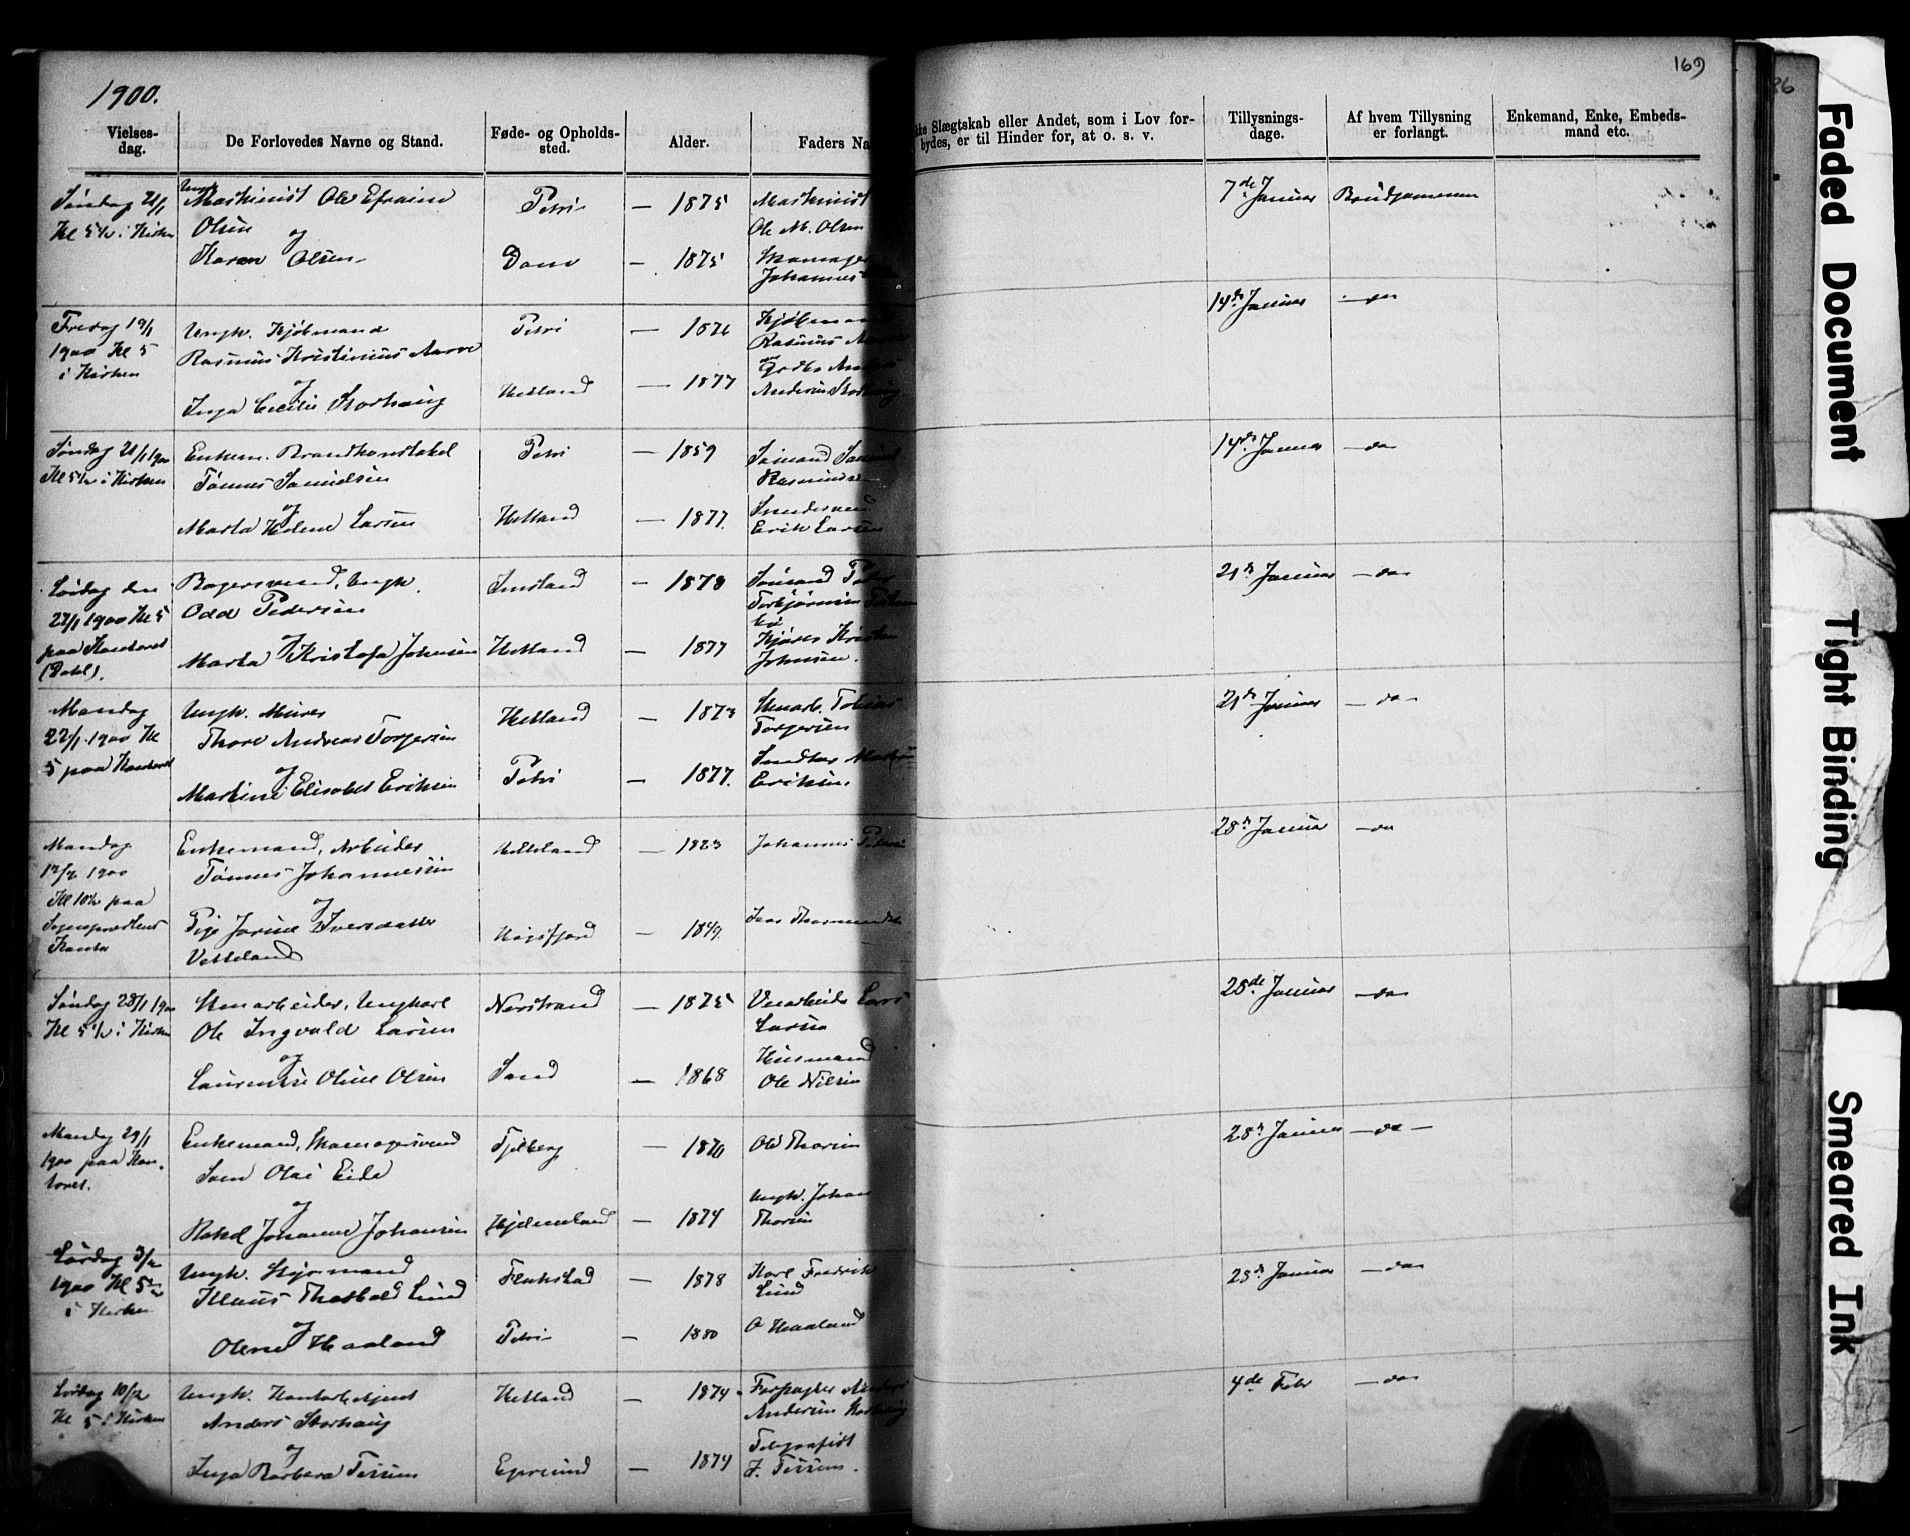 1900.
169
Vielses-
dag.
De Forlovedes Navne og Stand.
Føde- og Opholds-
sted.
Alder.
Faders Na
Slægtskab eller Andet, som i Lov for-
bydes, er til Hinder for, at o. s. v.
Tillysnings-
dage.
Af hvem Tillysning
er forlangt.
Enkemand, Enke, Embeds-
mand etc.
Søndag 21/1
Kl 5½ i Kirken
Ungk.
Maskinist Ole Efraim
Olsen
og
Karen Olsen
Petri
Do
— 1875
— 1875
Maskinist
Ole M. Olsen
Skomager
Johannes
7de Januar
Brudgommen
Fredag 19/1
1900 Kl 5
i Kirken
Ungk. Kjøbmand
Rasmus Kristinius Aarre
og
Inga Cecilie Storhaug
Petri
Hetland
— 1876
— 1877
Kjøbmand
Rasmus
Anders Storhaug
14de Januar
— do
Søndag 21/1 1900
Kl 5½ i Kirken
Enkem. Brandkonstabel
Tønnes Samuelsen
og
Marta Helene Larsen
Petri
Hetland
— 1859
— 1877.
Sømand Samuel
Rasmussen
Erik Larsen
14de Januar
— do
Lørdag den
27/1 1900 Kl 5
paa Kontoret
(Dahl).
Bagersvend, Ungk.
Odd Pedersen
og
Marta Kristofa Johnsen
Imsland
Hetland
— 1878
— 1877
Sømand Peder
Torbjørnsen
Johnsen.
21de Januar
— do
Mandag
22/1 1900 Kl
5 paa Kontoret
Ungk. Murer
Thore Andreas Torgersen
og
Martine Elisabet Eriksen
Hetland
Petri
— 1873
— 1877.
Stenarb. Tobias
Torgersen
Eriksen.
21de Januar
— do —
Mandag
12/2 1900
Kl 10½ paa
Sognepræstens
Kontor
Enkemand, Arbeider
Tønnes Johannessen
og
Pige Jorine Iversdatter
Vetteland
Helleland
Høgsfjord
— 1823
— 1849.
Johannes
28de Januar
— do
Søndag 28/1 1900
Kl 5½ i Kirken
Stenarbeider, Ungkarl
Ole Ingvald Larsen
og
Laurentse Oline Olsen
Nerstrand
Sand
— 1875
— 1868
Lars
Larsen
Husmand
Ole Nilsen
28de Januar
— do
Mandag 29/1
1900 paa Kon-
toret.
Enkemand, Skomagersvend
Sven Olai Eide
og
Rakel Johanne Johansen
Fjelberg
Hjelmeland
— 1870
— 1874
Ole Thorsen
Ungk. Johan
Thorsen
28de Januar
— do —
Lørdag 3/2
1900 Kl 5½
i Kirken
Ungk. Styrmand
Klaus Thesbald Lund
og
Olene Haaland
Flekstad
Petri
— 1878
— 1880
Karl Fredrik
Lund
O Haaland
28de Januar
— do
Lørdag 10/2
Kl 5 i Kirken
Ungk. Kontorbetjent
Anders Storhaug
og
Inga Barbara Tessem
Hetland
Egersund
— 1874
— 1874
Forpagter Anders
Andersen Storhaug
Telegrafist
J. Tessem.
4de Febr
— do
26
Faded Document
Tight Binding
Smeared Ink